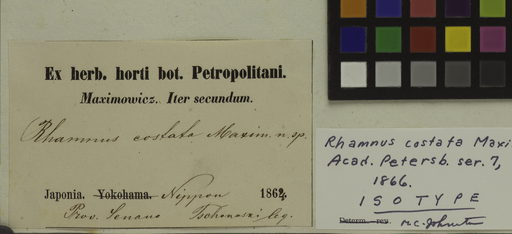 Ex herb. horti bot. Petropolitani.
Maximowicz. Iter secundum.
Rhamnus costata Maxim. n. sp.
Japonia. Yokohama. Nippon 1864.
Prov. Senano Tschonoski leg.
Rhamnus costata Maxi
Acad. Petersb. ser. 7,
1866.
ISOTYPE
Determ. rev. M.C. Johnston